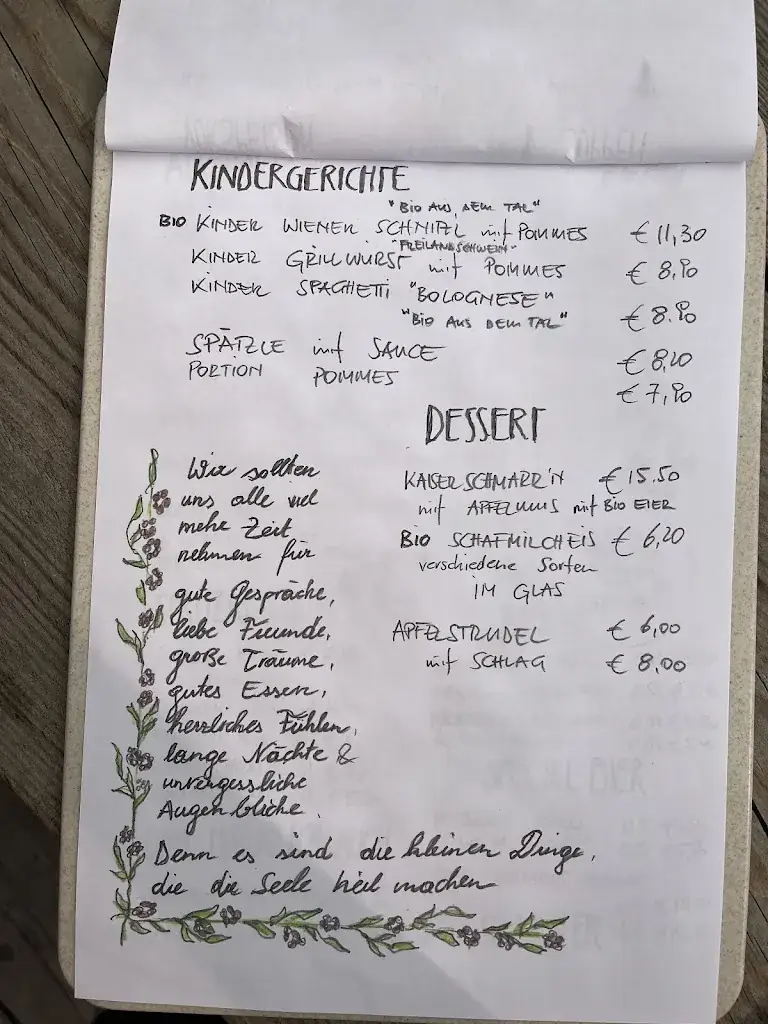 KINDERGERICHTE
"BIO AUS DEM TAL"
BIO KINDER WIENER SCHNITZL mit POMMES € 11,30
"FREILANDSCHWEIN"
KINDER GRILLWURST mit POMMES € 8,90
KINDER SPAGHETTI "BOLOGNESE"
"BIO AUS DEM TAL" € 8.90
SPÄTZLE mit SAUCE € 8,20
PORTION POMMES € 7,90
DESSERT
KAISERSCHMARR'N € 15.50
mit APFELMUS mit BIO EIER
BIO SCHAFMILCHEIS € 6,20
verschiedene Sorten
IM GLAS
APFELSTRUDEL € 6,00
mit SCHLAG € 8,00
Wir sollten
uns alle viel
mehr Zeit
nehmen für
gute Gespräche,
liebe Freunde,
große Träume,
gutes Essen,
herzliches Fühlen,
lange Nächte &
unvergessliche
Augenblicke.
Denn es sind die kleinen Dinge,
die die Seele heil machen